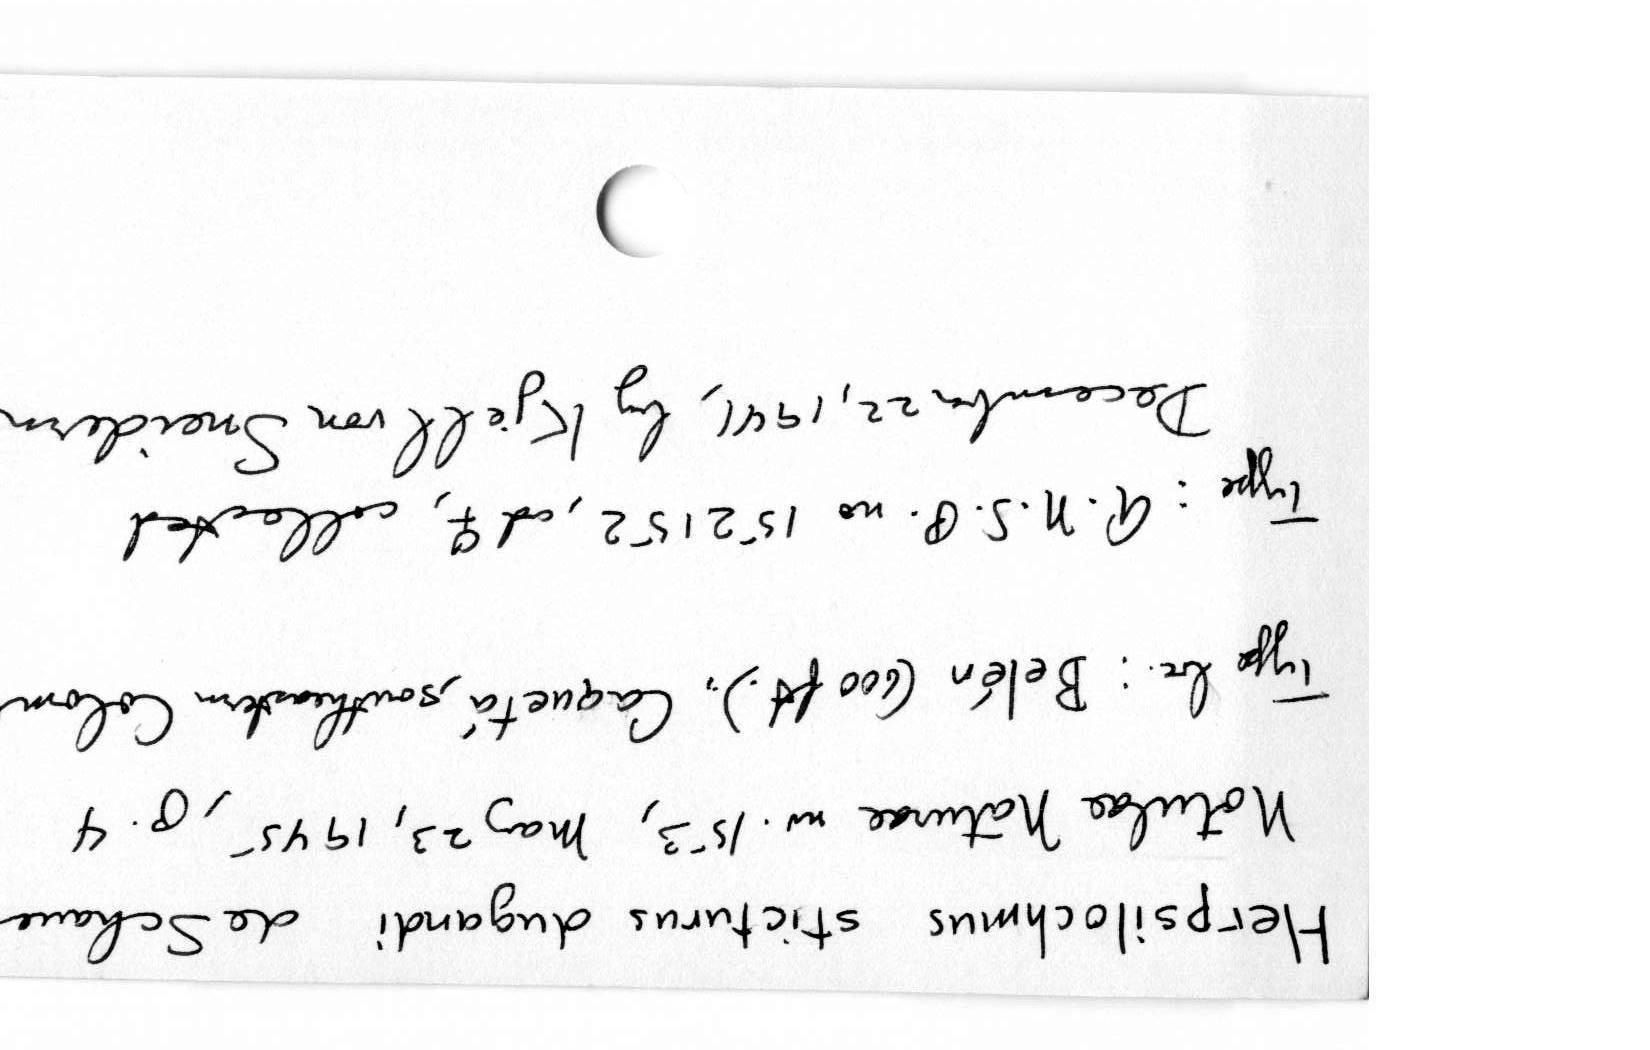 Herpsilochmus sticturus dugandi de Schaue
Notulae Naturae no. 153, May 23, 1945, p. 4
Type loc.: Belén (600 ft.), Caquetá, southeastern Colom
Type: A.N.S.P. no 152152, ad ♀, collected
December 22, 1941, by Kjell von Sneidern